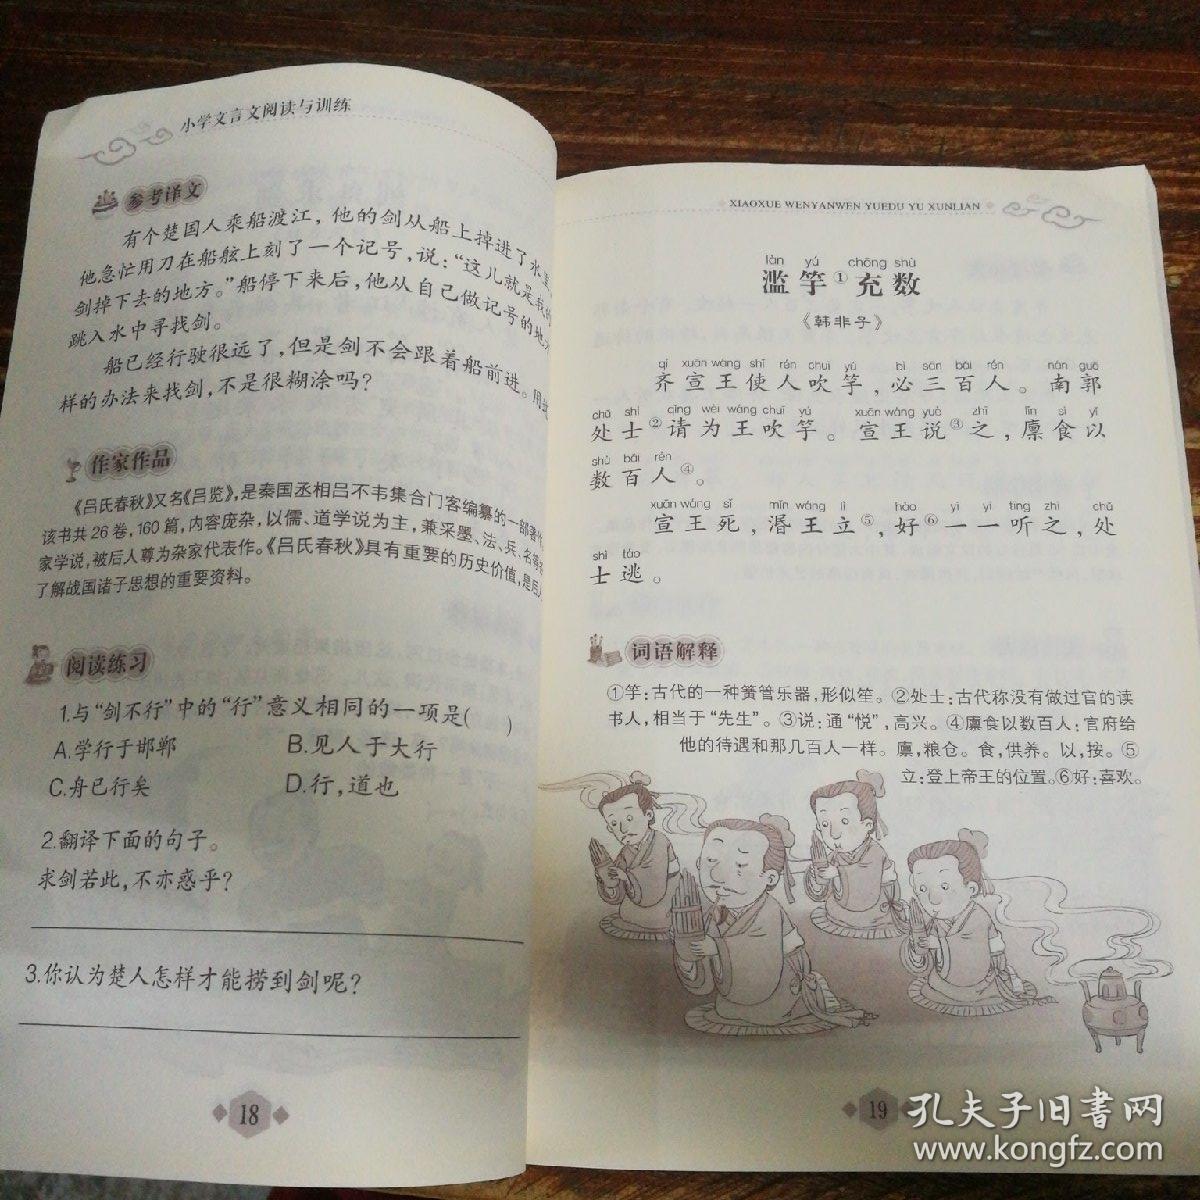 小学文言文阅读与训练
参考译文
有个楚国人乘船渡江，他的剑从船上掉进了水里，
他急忙用刀在船舷上刻了一个记号，说：“这儿就是我的
剑掉下去的地方。”船停下来后，他从自己做记号的地方
跳入水中寻找剑。
船已经行驶很远了，但是剑不会跟着船前进。用
样的办法来找剑，不是很糊涂吗？
作家作品
《吕氏春秋》又名《吕览》，是秦国丞相吕不韦集合门客编纂的一部著
该书共26卷，160篇，内容庞杂，以儒、道学说为主，兼采墨、法、兵、名等
家学说，被后人尊为杂家代表作。《吕氏春秋》具有重要的历史价值，是后人
了解战国诸子思想的重要资料。
阅读练习
1.与“剑不行”中的“行”意义相同的一项是(  )
A.学行于邯郸 B.见人于大行
C.舟已行矣 D.行，道也
2.翻译下面的句子。
求剑若此，不亦惑乎？
3.你认为楚人怎样才能捞到剑呢？
18
XIAOXUE WENYANWEN YUEDU YU XUNLIAN
làn yú chōng shù
滥竽①充数
《韩非子》
qí xuān wáng shǐ rén chuī yú bì sān bǎi rén nán guō
齐宣王使人吹竽，必三百人。南郭
chǔ shì qǐng wèi wáng chuī yú xuān wáng yuè zhī lǐn sì yǐ
处士②请为王吹竽。宣王说③之，廪食以
shù bǎi rén
数百人④。
xuān wáng sǐ mǐn wáng lì hào yī yī tīng zhī chǔ
宣王死，湣王立⑤，好⑥一一听之，处
shì táo
士逃。
词语解释
①竽：古代的一种簧管乐器，形似笙。②处士：古代称没有做过官的读
书人，相当于“先生”。③说：通“悦”，高兴。④廪食以数百人：官府给
他的待遇和那几百人一样。廪，粮仓。食，供养。以，按。⑤
立：登上帝王的位置。⑥好：喜欢。
19
孔夫子旧书网
www.kongfz.com